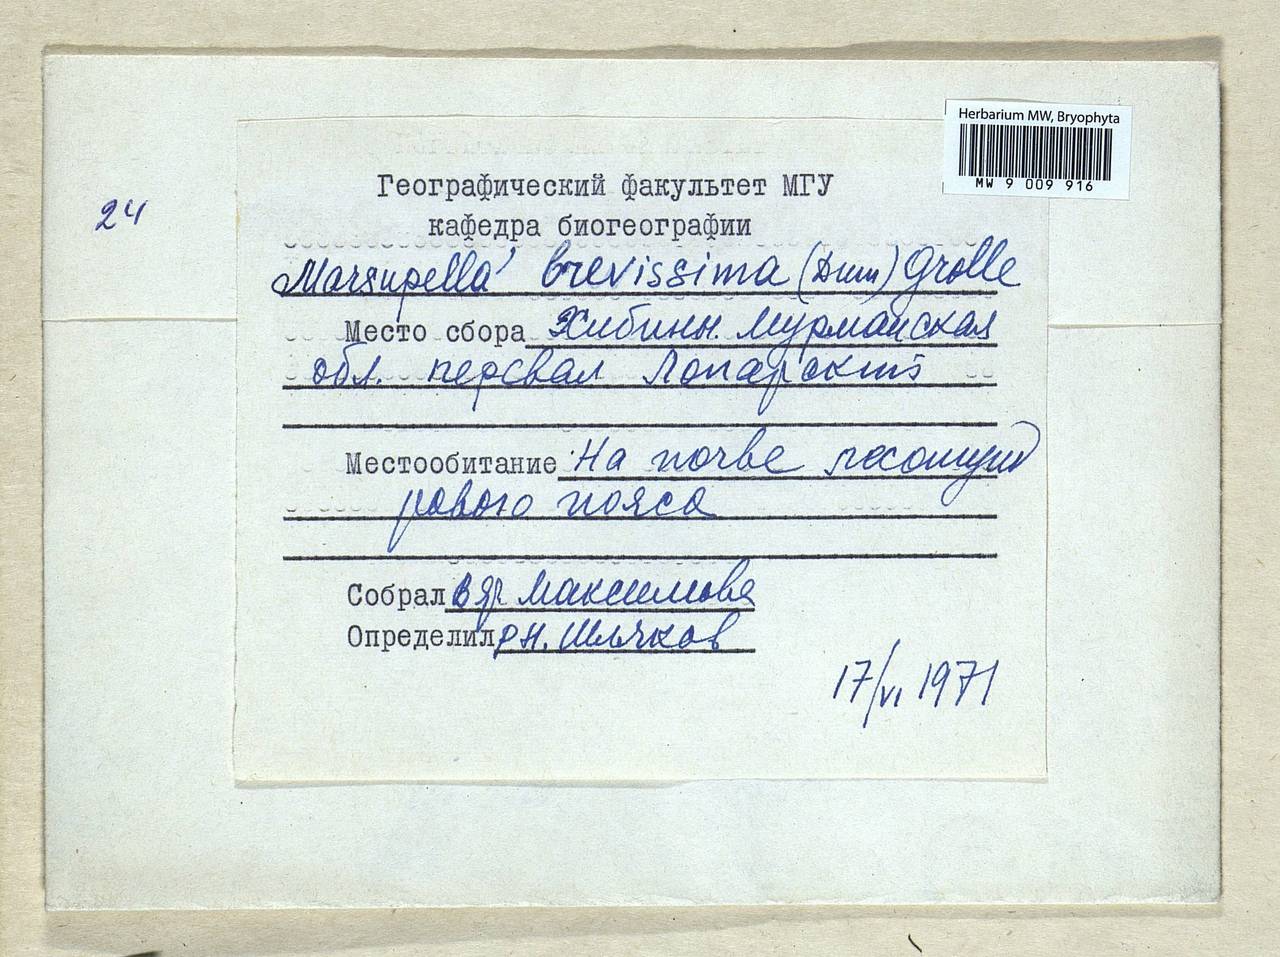 Herbarium MW, Bryophyta
MW 9 009 916
24
Географический факультет МГУ
кафедра биогеографии
Marsupella brevissima (Dum) Grolle
Место сбора Хибины. Мурманская
обл. перевал Лопарский
Местообитание На почве лесотунд
рового пояса
Собрал В Яр Максимова
Определил Р Н. Шляков
17/VI 1971